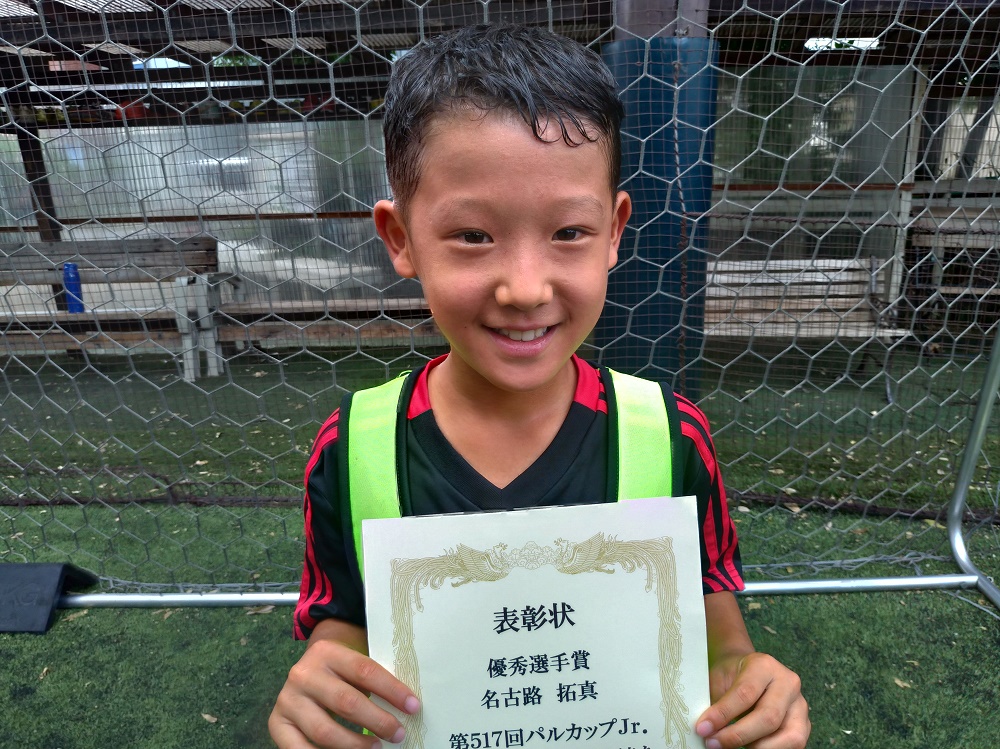 表彰状
優秀選手賞
名古路 拓真
第517回パルカップJr.